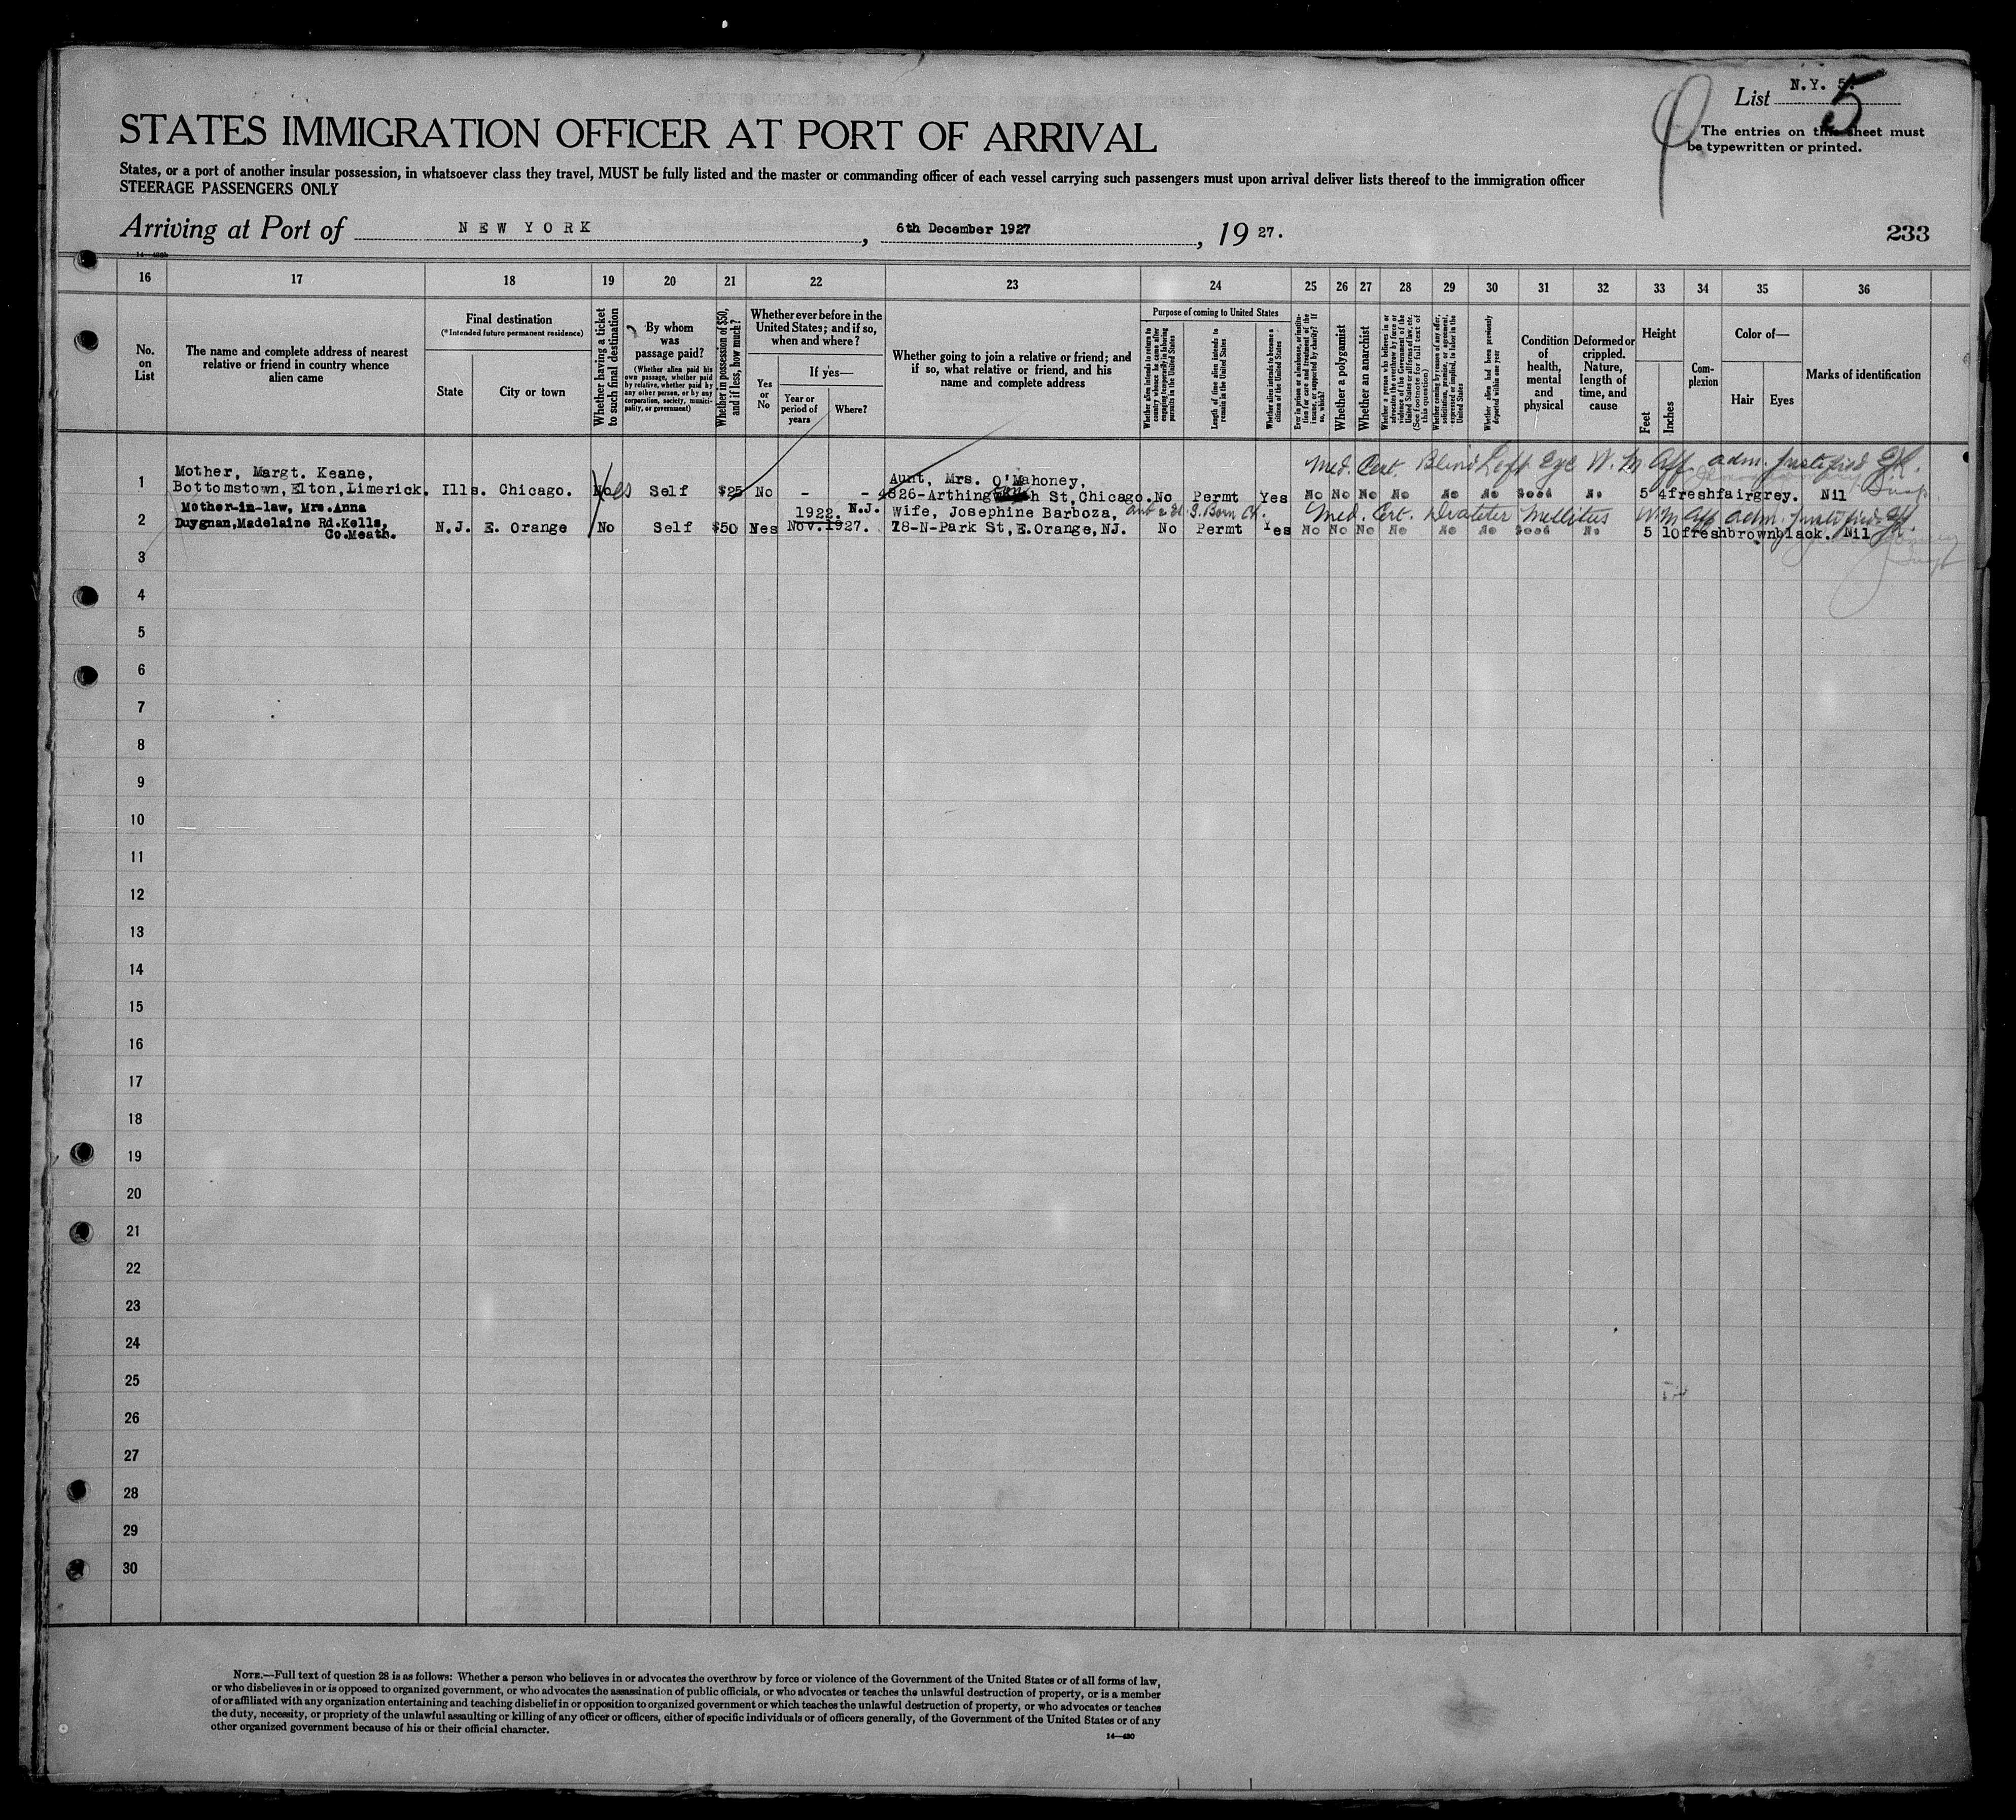 N.Y. 5.
List
5
The entries on this sheet must
be typewritten or printed.
STATES IMMIGRATION OFFICER AT PORT OF ARRIVAL
States, or a port of another insular possession, in whatsoever class they travel, MUST be fully listed and the master or commanding officer of each vessel carrying such passengers must upon arrival deliver lists thereof to the immigration officer
STEERAGE PASSENGERS ONLY
Arriving at Port of NEW YORK, 6th December 1927, 1927.
233
16 17 18 19 20 21 22 23 24 25 26 27 28 29 30 31 32 33 34 35 36
No. on List
The name and complete address of nearest relative or friend in country whence alien came
Final destination
(*Intended future permanent residence)
State
City or town
Whether having a ticket to such final destination
By whom was passage paid?
(Whether alien paid his own passage, whether paid by relative, whether paid by any other person, or by any corporation, society, municipality, or government)
Whether in possession of $50, and if less, how much?
Whether ever before in the United States; and if so, when and where?
Yes or No
If yes—
Year or period of years
Where?
Whether going to join a relative or friend; and if so, what relative or friend, and his name and complete address
Purpose of coming to United States
Whether alien intends to return to country whence he came after engaging temporarily in laboring pursuits in the United States
Length of time alien intends to remain in the United States
Whether alien intends to become a citizen of the United States
Ever in prison or almshouse, or institution for care and treatment of the insane, or supported by charity? If so, which?
Whether a polygamist
Whether an anarchist
Whether a person who believes in or advocates the overthrow by force or violence of the Government of the United States or all forms of law, etc. (See footnote for full text of this question)
Whether coming by reason of any offer, solicitation, promise, or agreement, expressed or implied, to labor in the United States
Whether alien had been previously deported within one year
Condition of health, mental and physical
Deformed or crippled. Nature, length of time, and cause
Height
Feet
Inches
Complexion
Color of—
Hair
Eyes
Marks of identification
Med. Cert. Blind Left Eye W. M Aff. adm. justified
1 Mother, Margt. Keane, Aunt, Mrs. O'Mahoney,
Bottomstown, Elton, Limerick. Ills. Chicago. Self $25 No - - 4826-Arthington St, Chicago. No Permt Yes No No No No No No Good No 5 4 fresh fair grey. Nil
2 Mother-in-law, Mrs. Anna 1922. N.J. Wife, Josephine Barboza, Med. Cert. Mellitus
Duygnan, Madelaine Rd. Kells, N.J. E. Orange No Self $50 Yes Nov. 1927. 78-N-Park St, E. Orange, NJ. No Permt Yes No No No No No No Good No 5 10 fresh brown black. Nil
Co. Meath.
3
4
5
6
7
8
9
10
11
12
13
14
15
16
17
18
19
20
21
22
23
24
25
26
27
28
29
30
NOTE.—Full text of question 28 is as follows: Whether a person who believes in or advocates the overthrow by force or violence of the Government of the United States or of all forms of law,
or who disbelieves in or is opposed to organized government, or who advocates the assassination of public officials, or who advocates or teaches the unlawful destruction of property, or is a member
of or affiliated with any organization entertaining and teaching disbelief in or opposition to organized government or which teaches the unlawful destruction of property, or who advocates or teaches
the duty, necessity, or propriety of the unlawful assaulting or killing of any officer or officers, either of specific individuals or of officers generally, of the Government of the United States or of any
other organized government because of his or their official character.
14—430